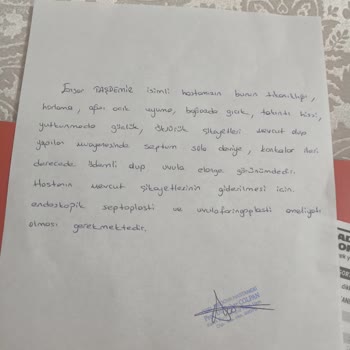 Ensar TAŞDEMİR isimli hastamızın burun tıkanıklığı,
horlama, ağzı açık uyuma, boğazda gıcık, takıntı hissi,
yutkunmada güçlük, öksürük şikayetleri mevcut olup
yapılan muayenesinde septum sola deviye, konkalar ileri
derecede ödemli olup uvula elonge görünümdedir.
Hastanın mevcut şikayetlerinin giderilmesi için
endoskopik septoplasti ve uvulofaringoplasti ameliyatı
olması gerekmektedir.